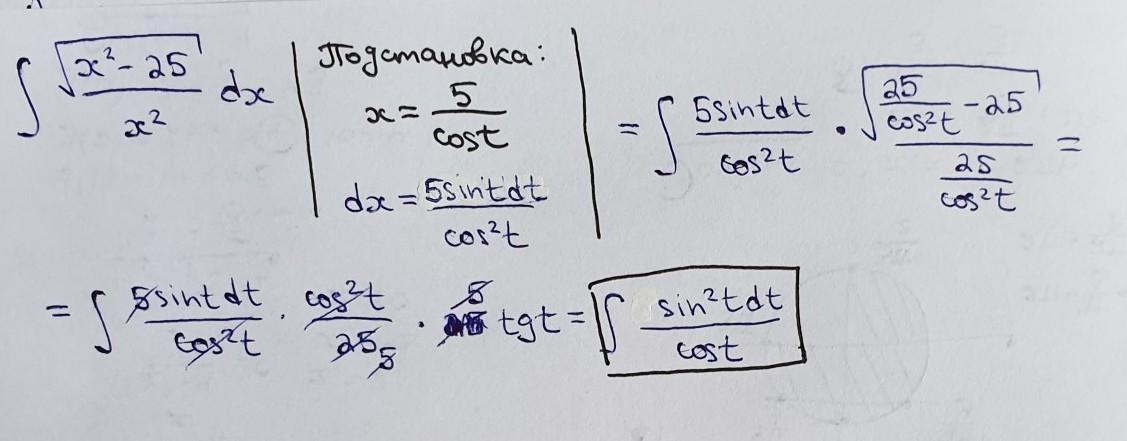 ∫ √(x² - 25) / x² dx | Подстановка: x = 5 / cost dx = 5sintdt / cos²t | = ∫ 5sintdt / cos²t · √(25 / cos²t - 25) / (25 / cos²t) =
= ∫ 5sintdt / cos²t · cos²t / 25 5 · 5 tgt = ∫ sin²tdt / cost